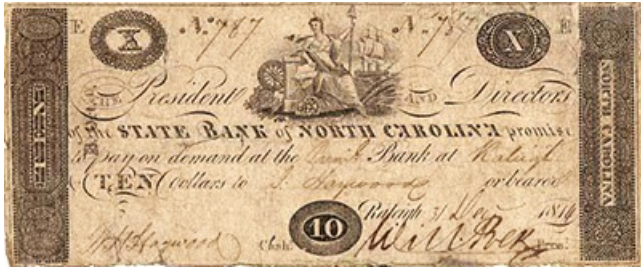 E X No 787 No 787 X E
TEN
NORTH CAROLINA
The President AND Directors
of the STATE BANK of NORTH CAROLINA promise
to pay on demand at the Bank at Raleigh
TEN Dollars to S. Haywood or bearer
Raleigh Dec 181
W H Haywood Cash. 10 Pres.